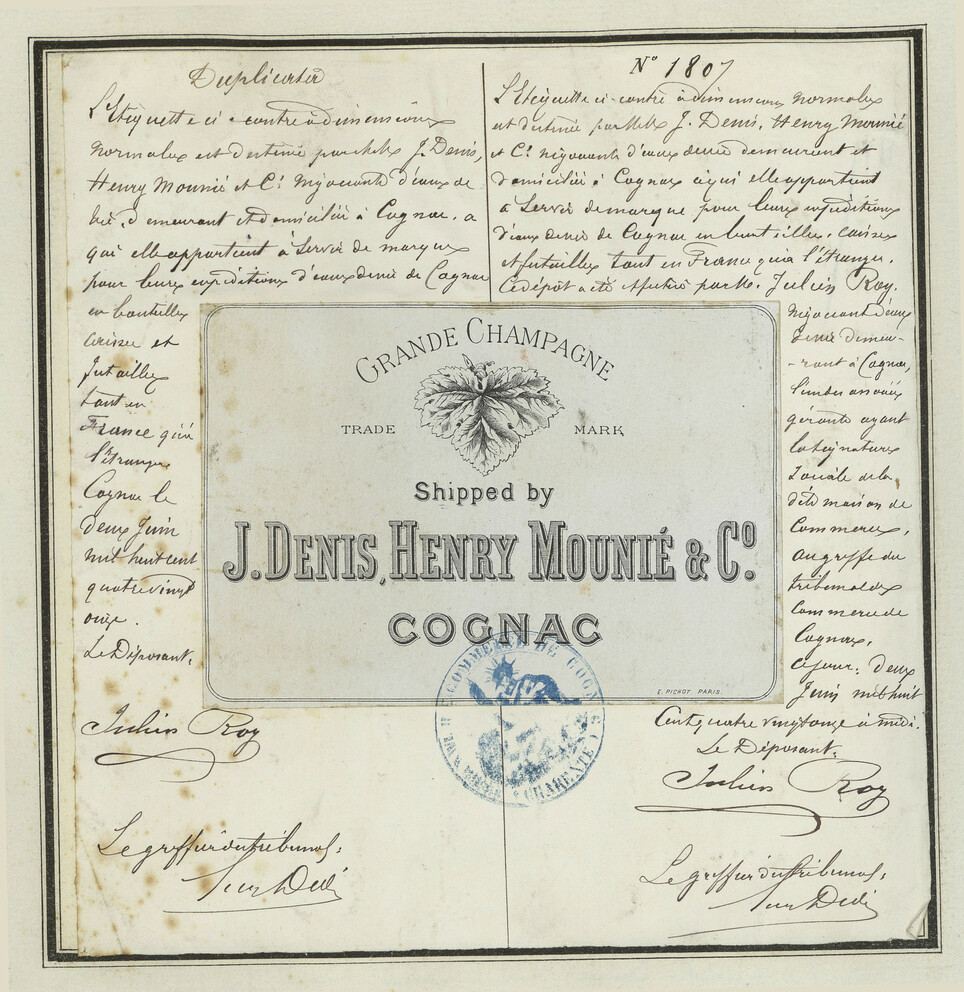 Duplicata
L'Etiquette ci-contre à dimensions
normales est destinée par MM. J. Denis,
Henry Mounié et Cie négociants d'eaux de
vie, demeurant et domiciliés à Cognac, a
qui elle appartient à servir de marque
pour leurs expéditions d'eaux de vie de Cognac
en bouteilles
caisses et
futailles
tant en
France qu'à
l'étranger
Cognac le
deux Juin
mil huit cent
quatre vingt
onze.
Le Déposant,
Julien Roy
Le greffier du tribunal,
No 1807
L'Etiquette ci-contre à dimensions normales
est destinée par MM. J. Denis, Henry Mounié
et Cie négociants d'eaux de vie demeurant et
domiciliés à Cognac à qui elle appartient
à servir de marque pour leurs expéditions
d'eaux de vie de Cognac en bouteilles, caisses
et futailles tant en France qu'à l'étranger.
Ce dépôt a été effectué par M. Julien Roy,
négociant d'eaux
de vie demeu-
-rant à Cognac,
l'un des associés
gérants ayant
la signature
sociale de la
dite maison de
Commerce,
au greffe du
tribunal de
Commerce de
Cognac,
ce jour, deux
Juin mil huit
Cent quatre vingt onze à midi.
Le Déposant,
Julien Roy
Le greffier du tribunal,
GRANDE CHAMPAGNE
TRADE MARK
Shipped by
J. DENIS, HENRY MOUNIÉ & Co.
COGNAC
E. PICHOT. PARIS.
COMMERCE DE COGNAC
CHARENTE